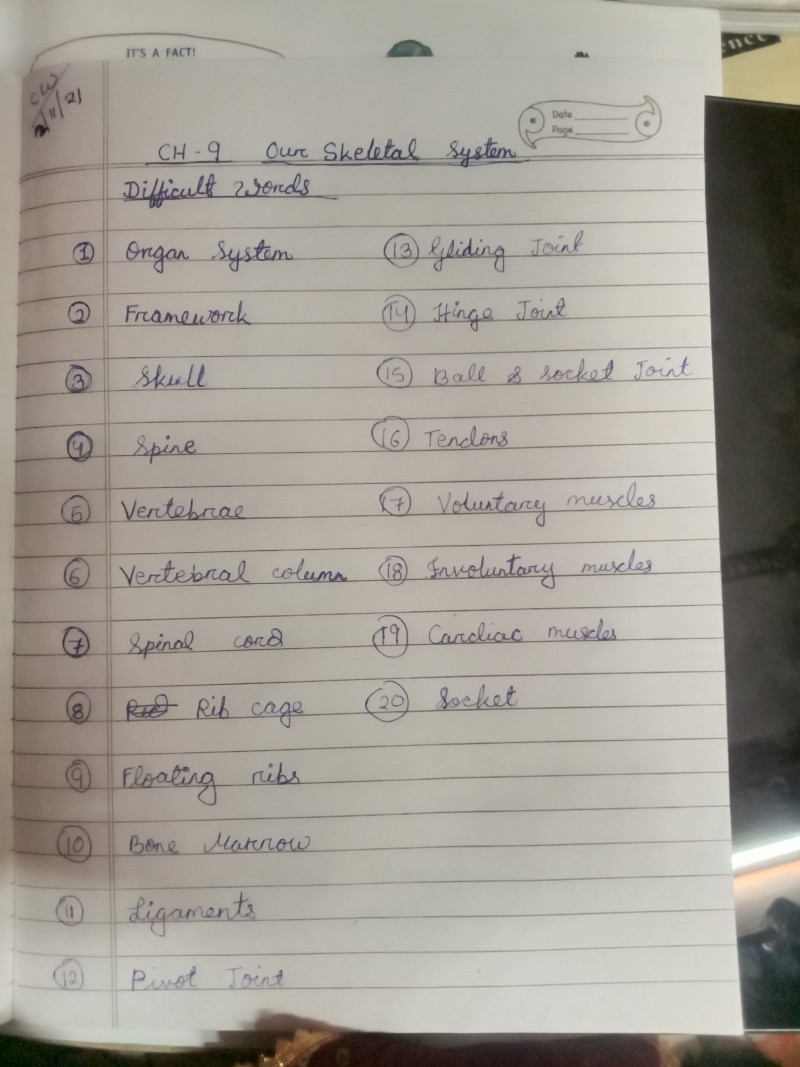 IT'S A FACT!
CW
2/11/21
Date
Page
CH-9 Our Skeletal System
Difficult Words
1 Organ System
2 Framework
3 Skull
4 Spine
5 Vertebrae
6 Vertebral column
7 Spinal cord
8 Rib cage
9 Floating ribs
10 Bone Marrow
11 Ligaments
12 Pivot Joint
13 Gliding Joint
14 Hinge Joint
15 Ball & Socket Joint
16 Tendons
17 Voluntary muscles
18 Involuntary muscles
19 Cardiac muscles
20 Socket